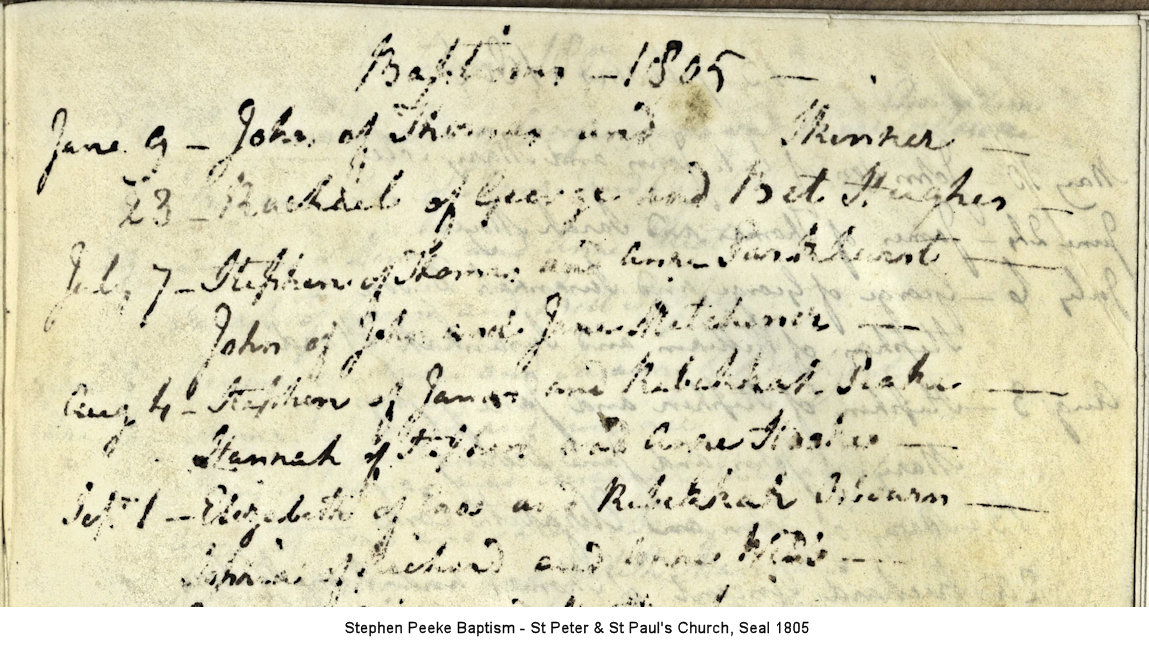 Baptisms – 1805 –
June 9 – John of Thomas and Skinner –
23 – Rachael of George and Bet Hughes –
July 7 – Stephen of Thomas and Anne Parkhurst –
John of John and Jane –
Aug 4 – Stephen of James and Rebekkah Peake –
Hannah of Stephen and Anne –
Sept 1 – Elizabeth of and Rebekkah –
Sophia of Richard and Anne –
Stephen Peeke Baptism - St Peter & St Paul's Church, Seal 1805